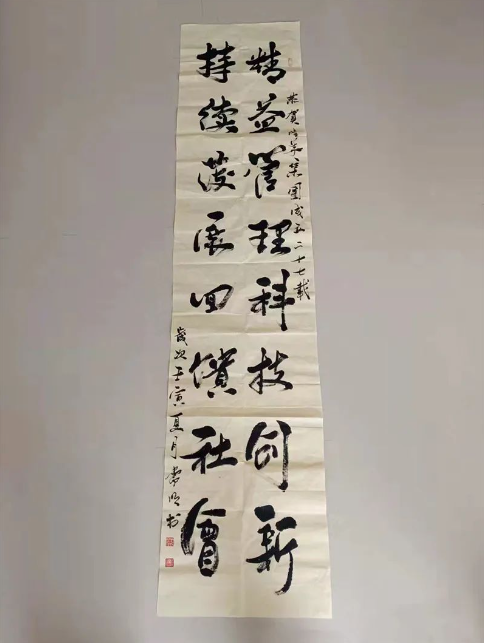 恭賀集團成立二十七載
精益管理科技创新
持续發展回饋社會
歲次壬寅夏月